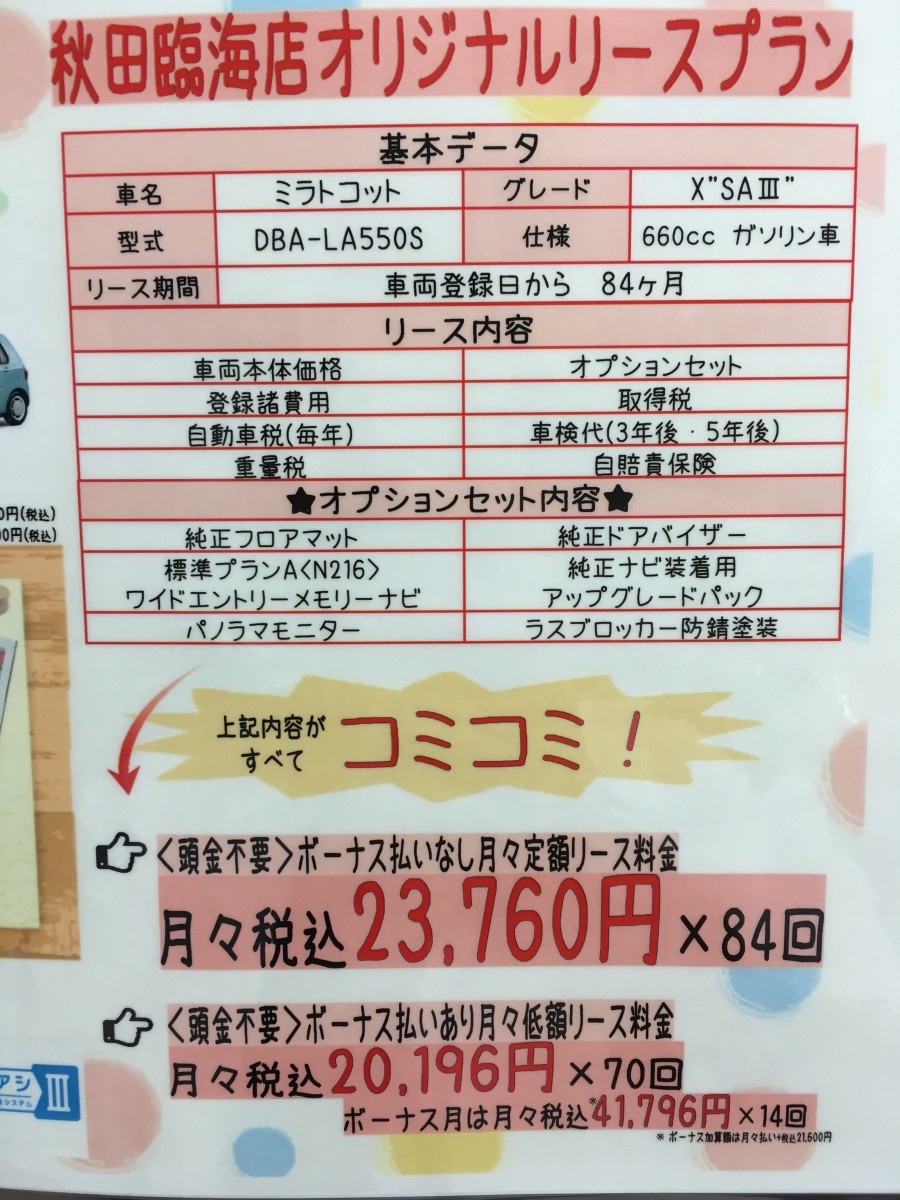 秋田臨海店オリジナルリースプラン
基本データ
車名 ミラトコット グレード X"SAⅢ"
型式 DBA-LA550S 仕様 660cc ガソリン車
リース期間 車両登録日から 84ヶ月
リース内容
車両本体価格 オプションセット
登録諸費用 取得税
自動車税(毎年) 車検代(3年後・5年後)
重量税 自賠責保険
★オプションセット内容★
純正フロアマット 純正ドアバイザー
標準プランA<N216> 純正ナビ装着用
ワイドエントリーメモリーナビ アップグレードパック
パノラマモニター ラスブロッカー防錆塗装
0円(税込)
00円(税込)
上記内容が
すべて
コミコミ!
<頭金不要>ボーナス払いなし月々定額リース料金
月々税込23,760円×84回
<頭金不要>ボーナス払いあり月々低額リース料金
月々税込20,196円×70回
ボーナス月は月々税込※41,796円×14回
※ ボーナス加算額は月々払い+税込21,600円
アシ
システム
Ⅲ